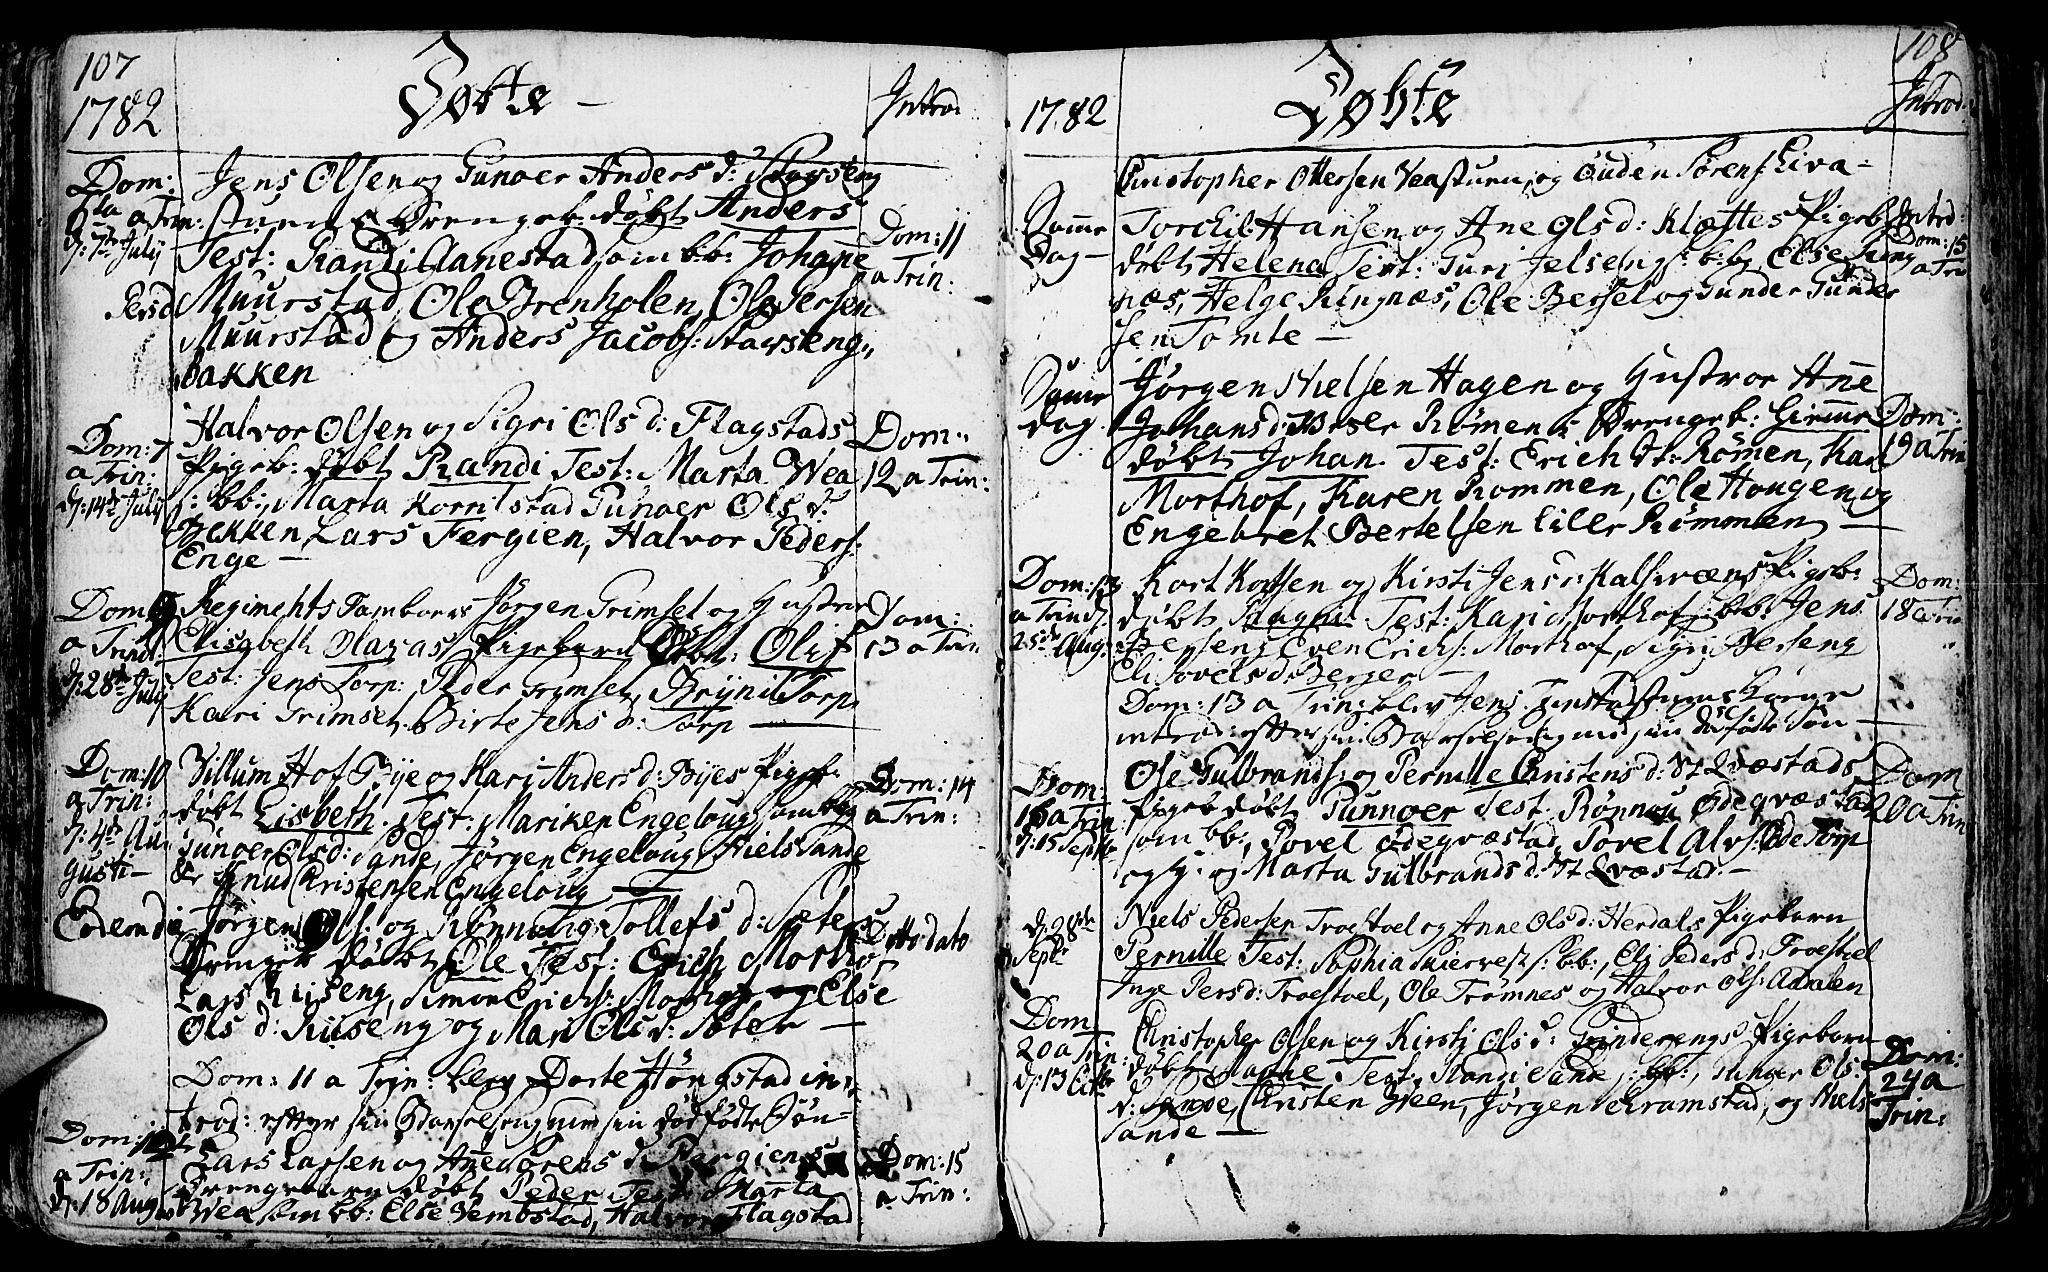 107
1782
Døbte
Introd.
Dom: 6ta a Trin: d: 7de July
Jens Olsen og Gunoer Anders d:
stuen Drengeb: døbt Anders
Test: Randi Aanestad som bb: Johane
Muurstad, Ole Brenholen, Ole Persen
Muurstad og Anders Jacobs:
bakken
Dom: 11 a Trin:
Dom: 7 a Trin: d: 14de July
Halvor Olsen og Sigri Ols d: Flagstads
Pigeb: døbt Randi Test: Marta Wea
s: bb:, Marta Korrilstad Gunoer Ols d:
Bekken Lars Fergien, Halvor Peders:
Enge —
Dom: 12 a Trin:
Dom: a Trinit: d: 28de July
Regiments Tambour Jørgen Grimset og Hustru
Elisabeth Pigebarn Døbt: Olif
Test: Jens Torp: Peder Grimset, Bryni Torp
Kari Grimset, Birte Jens d: Torp —
Dom: 13 a Trin
Dom: 10 a Trin: d: 4de Augusti —
Villum Hof Bye og Kari Anders d: Byes Pigeb:
døbt Lisbeth. Test: Mariken Engeloug som bb:
Gunoer Olsd: Sande, Jørgen Engeloug, Niels Sande
& Knud Kristensen Engeloug —
Dom: 14 a Trin:
Eodem die
Jørgen Ols: og Rønnaug Tollefs d: Sæters
Drengeb: døbt Ole Test: Erich Morthof
Lars Riiseng, Simon Erichs: Morthof og Else
Ols d: Riiseng og Mari Ols d: Sæter —
Ditto dato
Dom: 11 a Trin: blev Dorte Høngstad in-
trod: efter sin Barselseng med sin dødfødte Søn —
Dom: 12 a Trin: d: 18 Aug
Lars Larsen og Anne Sørens d: Fergiens
Drengebarn døbt Peder Test: Marta
Wea som bb: Else Vembstad, Halvor Flagstad
Dom: 15 a Trin:
108
1782
Døbte
Introd.
Christopher Ottersen Veastuen, og Ouden Sørens: Liva —
Samme Dag —
Torchil Hansen og Ane Ols d: Klættes Pigeb:
døbt Helena Test: Guri Jelseng s: bb: Else Ring
næs, Helge Ringnæs, Ole Berset og Gunder Gunder
sen Tomte —
Introd: Dom: 15 a Trin
Samme dag
Jørgen Nielsen Hagen og Hustroe Ane
Johans d: Rømen Drengeb:
døbt Johan. Test: Erich Rømen, Kari
Morthof, Karen Rommen, Ole Hougen og
Engebret Bertelsen lille Rømmen —
Dom: 19 a Trin
Dom: 13 a Trin d: 25de Aug:
Kort Kortsen og Kirsti Jens d: Kalsveens Pigeb:
døbt Ragni. Test: Kari Morthof s: bb: Jens
Berseng Even Erichs: Morthof, Sigri Berseng
Eli Povels d: Berger —
Dom: 18 a Trin
Dom: 13 a Trin: blev Jens
introd: efter sin Barselseng med sin dødfødte Søn —
Dom: 16 a Trin d: 15 Septbr
Ole Gulbrands: og Pernille Christens d: St Qvæstads
Pigeb døbt Gunnoer Test. Rønnau Ødeqvæstad
som bb:, Povel Ødeqvæstad, Povel Alvs: Øde Torp
og Marta Gulbrands d: St Qvæstad. —
Dom 20 a Trin
d: 28de Septbr
Niels Pedersen Troestoel og Anne Ols d: Herdals Pigebarn
Pernille Test: Sophia s: bb:, Eli Peders d: Troestoel
Inge Persd: Troestoel, Ole Trømnes og Halvor Ols: Aadalen
Dom 20 a Trin: d: 13 Octbr
Christopher Olsen og Kirsti Ols d: Grinderengs Pigebarn
døbt Test: Randi Sande s: bb:, Gunoer Ols:
d: Sande, Christen Veen, Jørgen Kramstad, og Niels
Sande —
Dom: 24 a Trin: